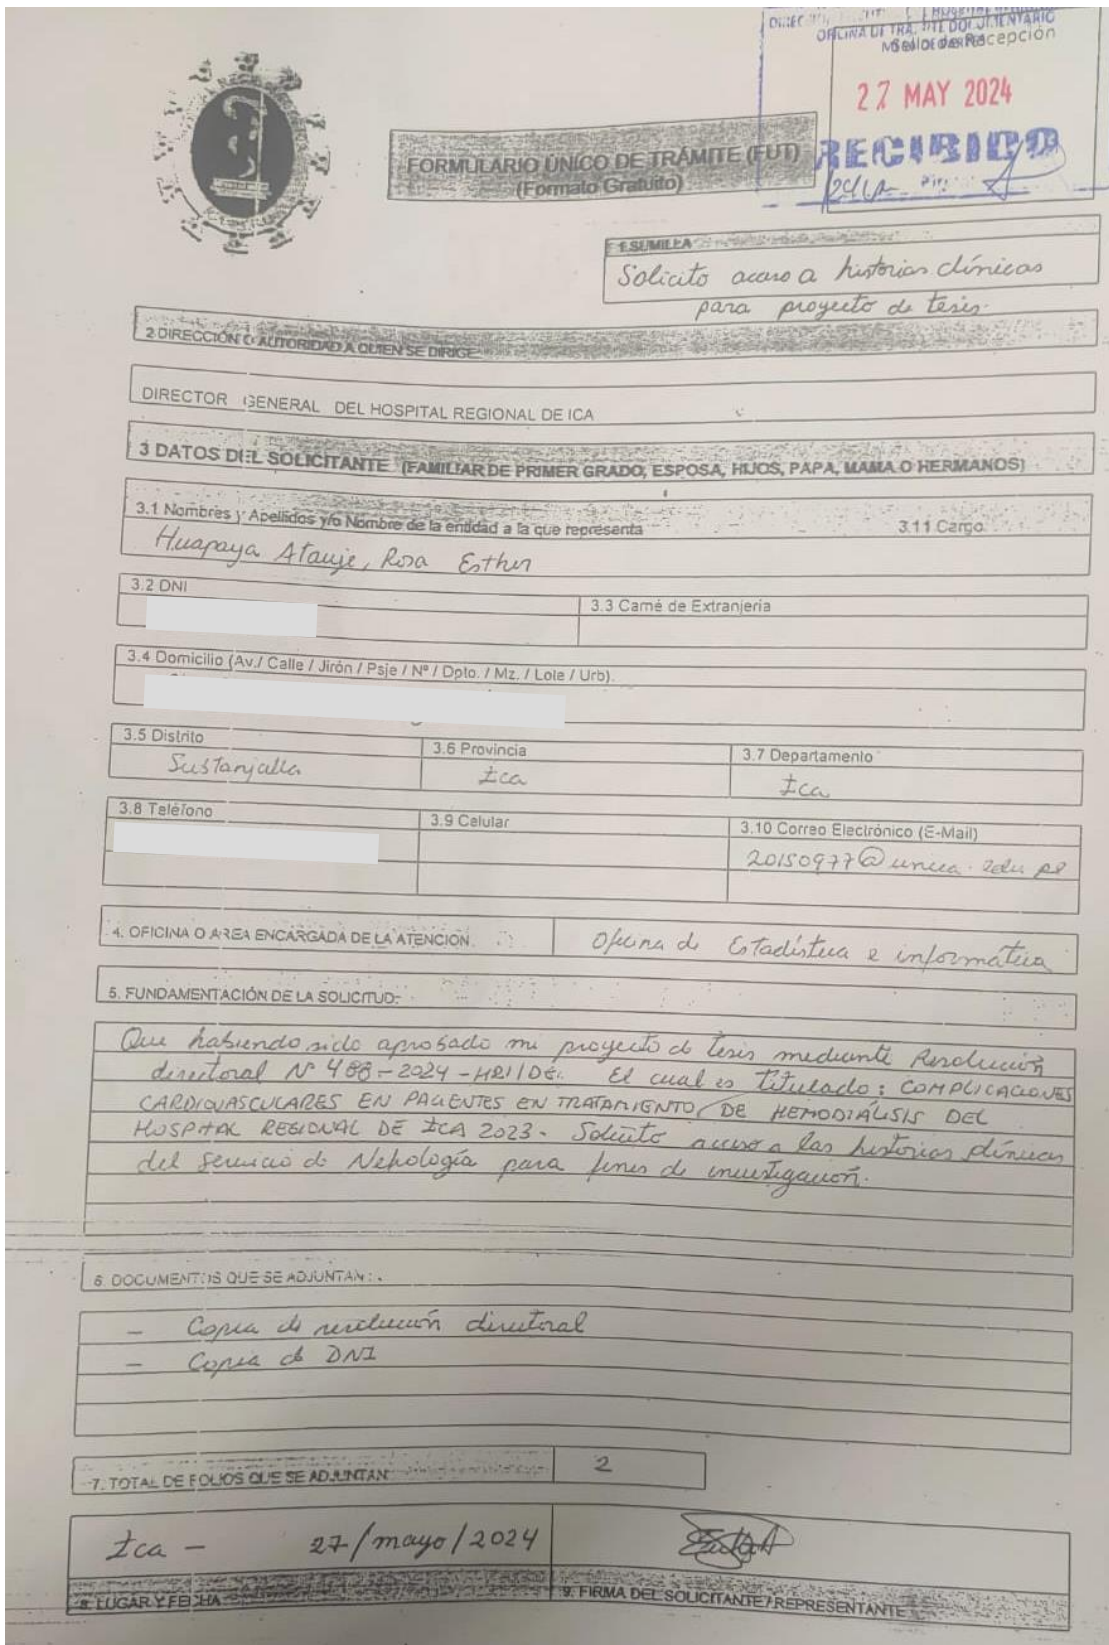 OFICINA DE TRAMITE DOCUMENTARIO
Sello de Recepción
27 MAY 2024
RECIBIDO
FORMULARIO ÚNICO DE TRÁMITE (FUT)
(Formato Gratuito)
1 SUMILLA
Solicito acceso a historias clínicas
para proyecto de tesis.
2 DIRECCIÓN O AUTORIDAD A QUIEN SE DIRIGE
DIRECTOR GENERAL DEL HOSPITAL REGIONAL DE ICA
3 DATOS DEL SOLICITANTE (FAMILIAR DE PRIMER GRADO, ESPOSA, HIJOS, PAPA, MAMA O HERMANOS)
3.1 Nombres y Apellidos y/o Nombre de la entidad a la que representa 3.11 Cargo
Huapaya Atauje, Rosa Esther
3.2 DNI 3.3 Carné de Extranjería
3.4 Domicilio (Av./ Calle / Jirón / Psje / Nº / Dpto. / Mz. / Lote / Urb).
3.5 Distrito 3.6 Provincia 3.7 Departamento
Sustanjalla Ica Ica
3.8 Teléfono 3.9 Celular 3.10 Correo Electrónico (E-Mail)
20150977@unica.edu.pe
4. OFICINA O AREA ENCARGADA DE LA ATENCION. Oficina de Estadística e informática
5. FUNDAMENTACIÓN DE LA SOLICITUD:
Que habiendo sido aprobado mi proyecto de tesis mediante Resolución
directoral Nº 488-2024-HRI/DE. El cual es titulado: COMPLICACIONES
CARDIOVASCULARES EN PACIENTES EN TRATAMIENTO DE HEMODIÁLISIS DEL
HOSPITAL REGIONAL DE ICA 2023. Solicito acceso a las historias clínicas
del servicio de Nefrología para fines de investigación.
6. DOCUMENTOS QUE SE ADJUNTAN:
- Copia de resolución directoral
- Copia de DNI
7. TOTAL DE FOLIOS QUE SE ADJUNTAN 2
Ica - 27/mayo/2024
8. LUGAR Y FECHA 9. FIRMA DEL SOLICITANTE / REPRESENTANTE